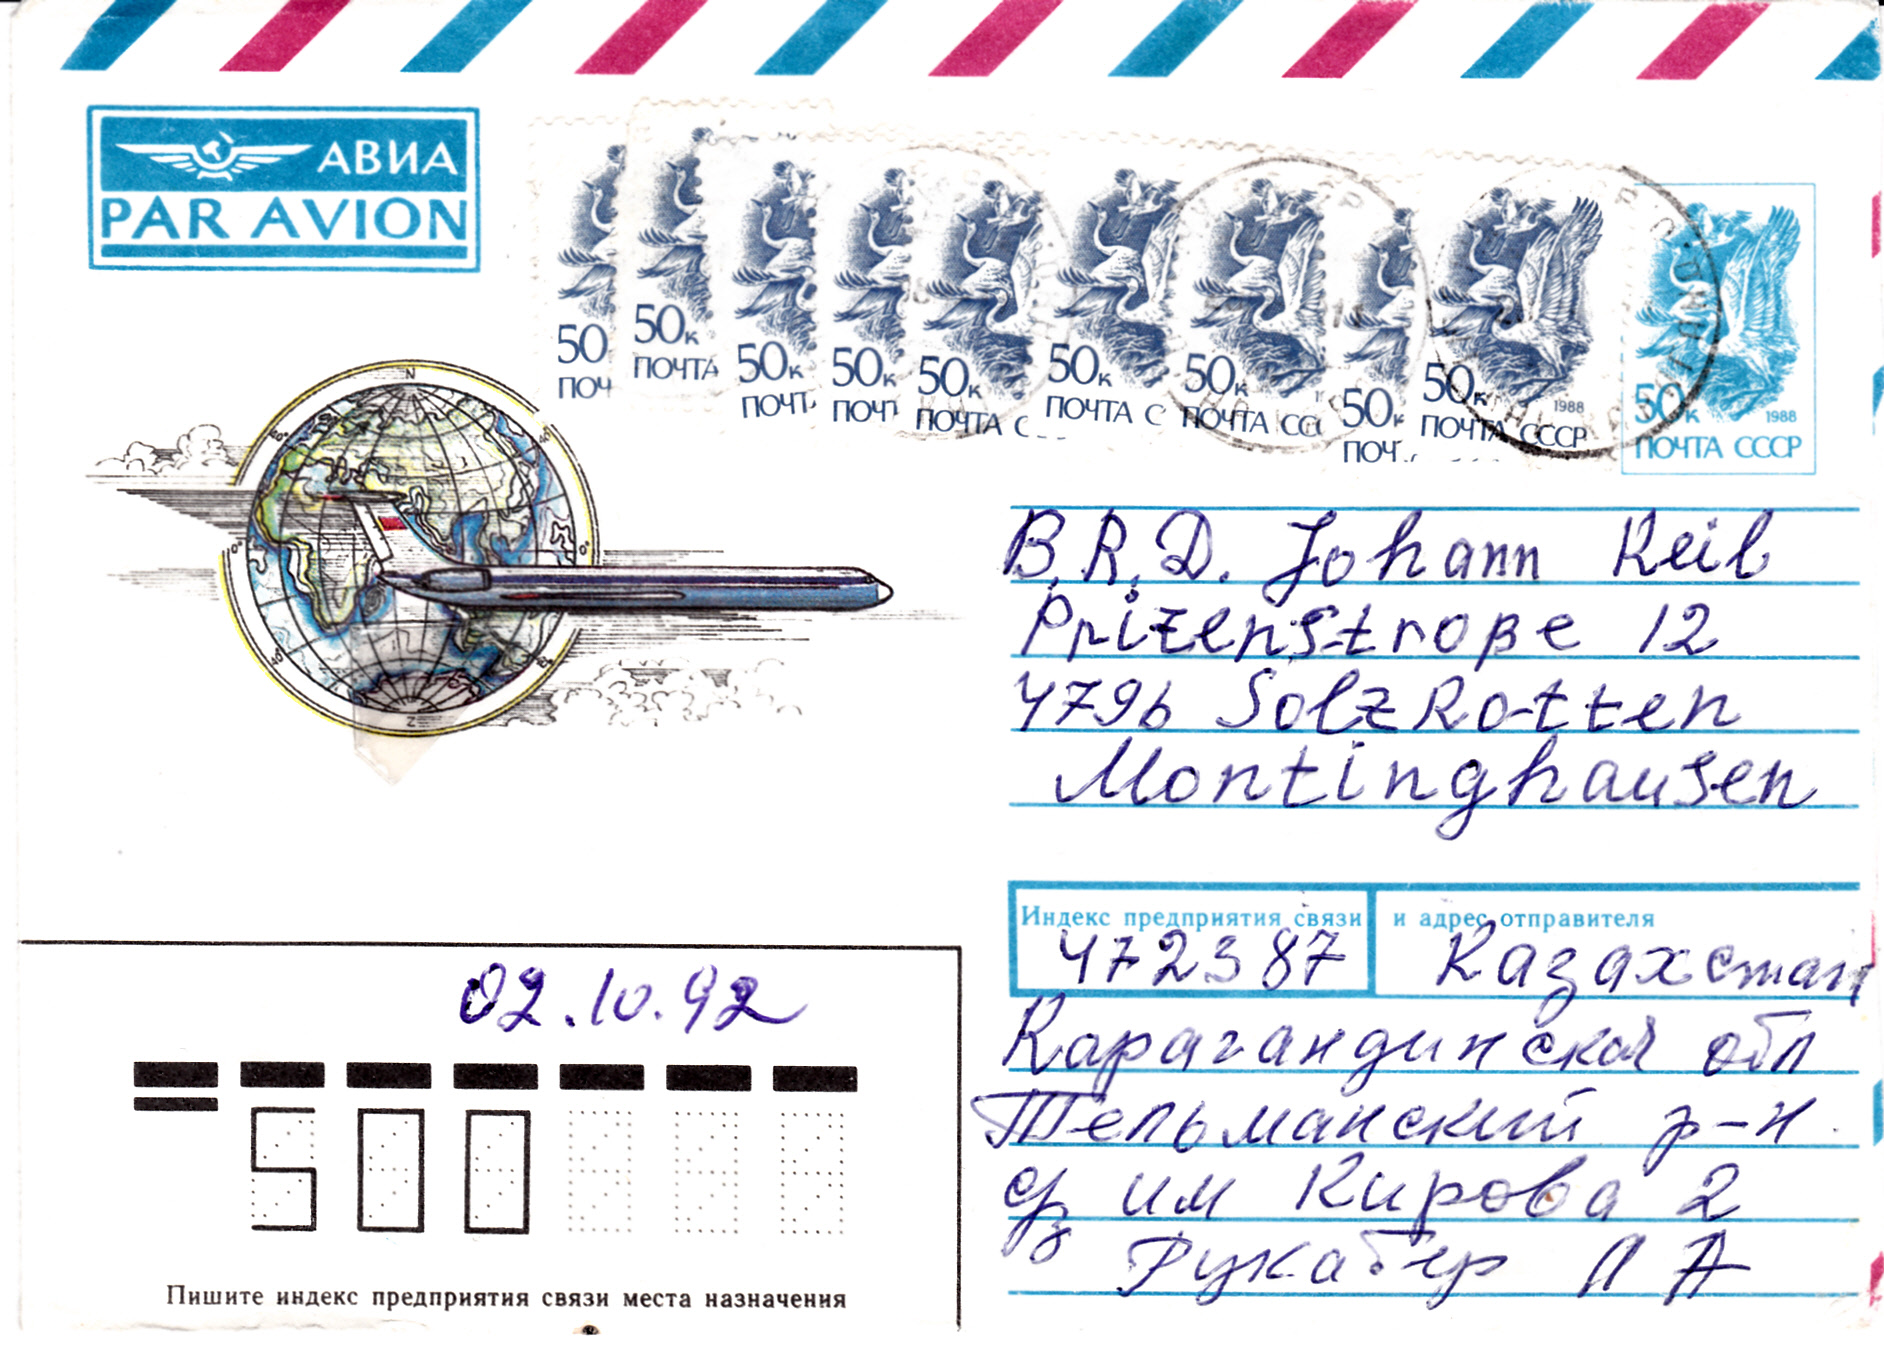 АВИА
PAR AVION
50
ПОЧ
50к
ПОЧТА
50к
ПОЧТ
50к
ПОЧТ
50к
ПОЧТА С
50к
ПОЧТА С
50к
ПОЧТА СС
50к
ПОЧ
50к
1988
ПОЧТА СССР
50к
1988
ПОЧТА СССР
N
B.R.D. Johann Keib
Prizenstroße 12
4796 SolzRotten
Montinghausen
Индекс предприятия связи и адрес отправителя
472387 Казахстан
Карагандинская обл
Тельманский р-н
с/з им Кирова 2
Рукабер Л А
02.10.92
500
Пишите индекс предприятия связи места назначения